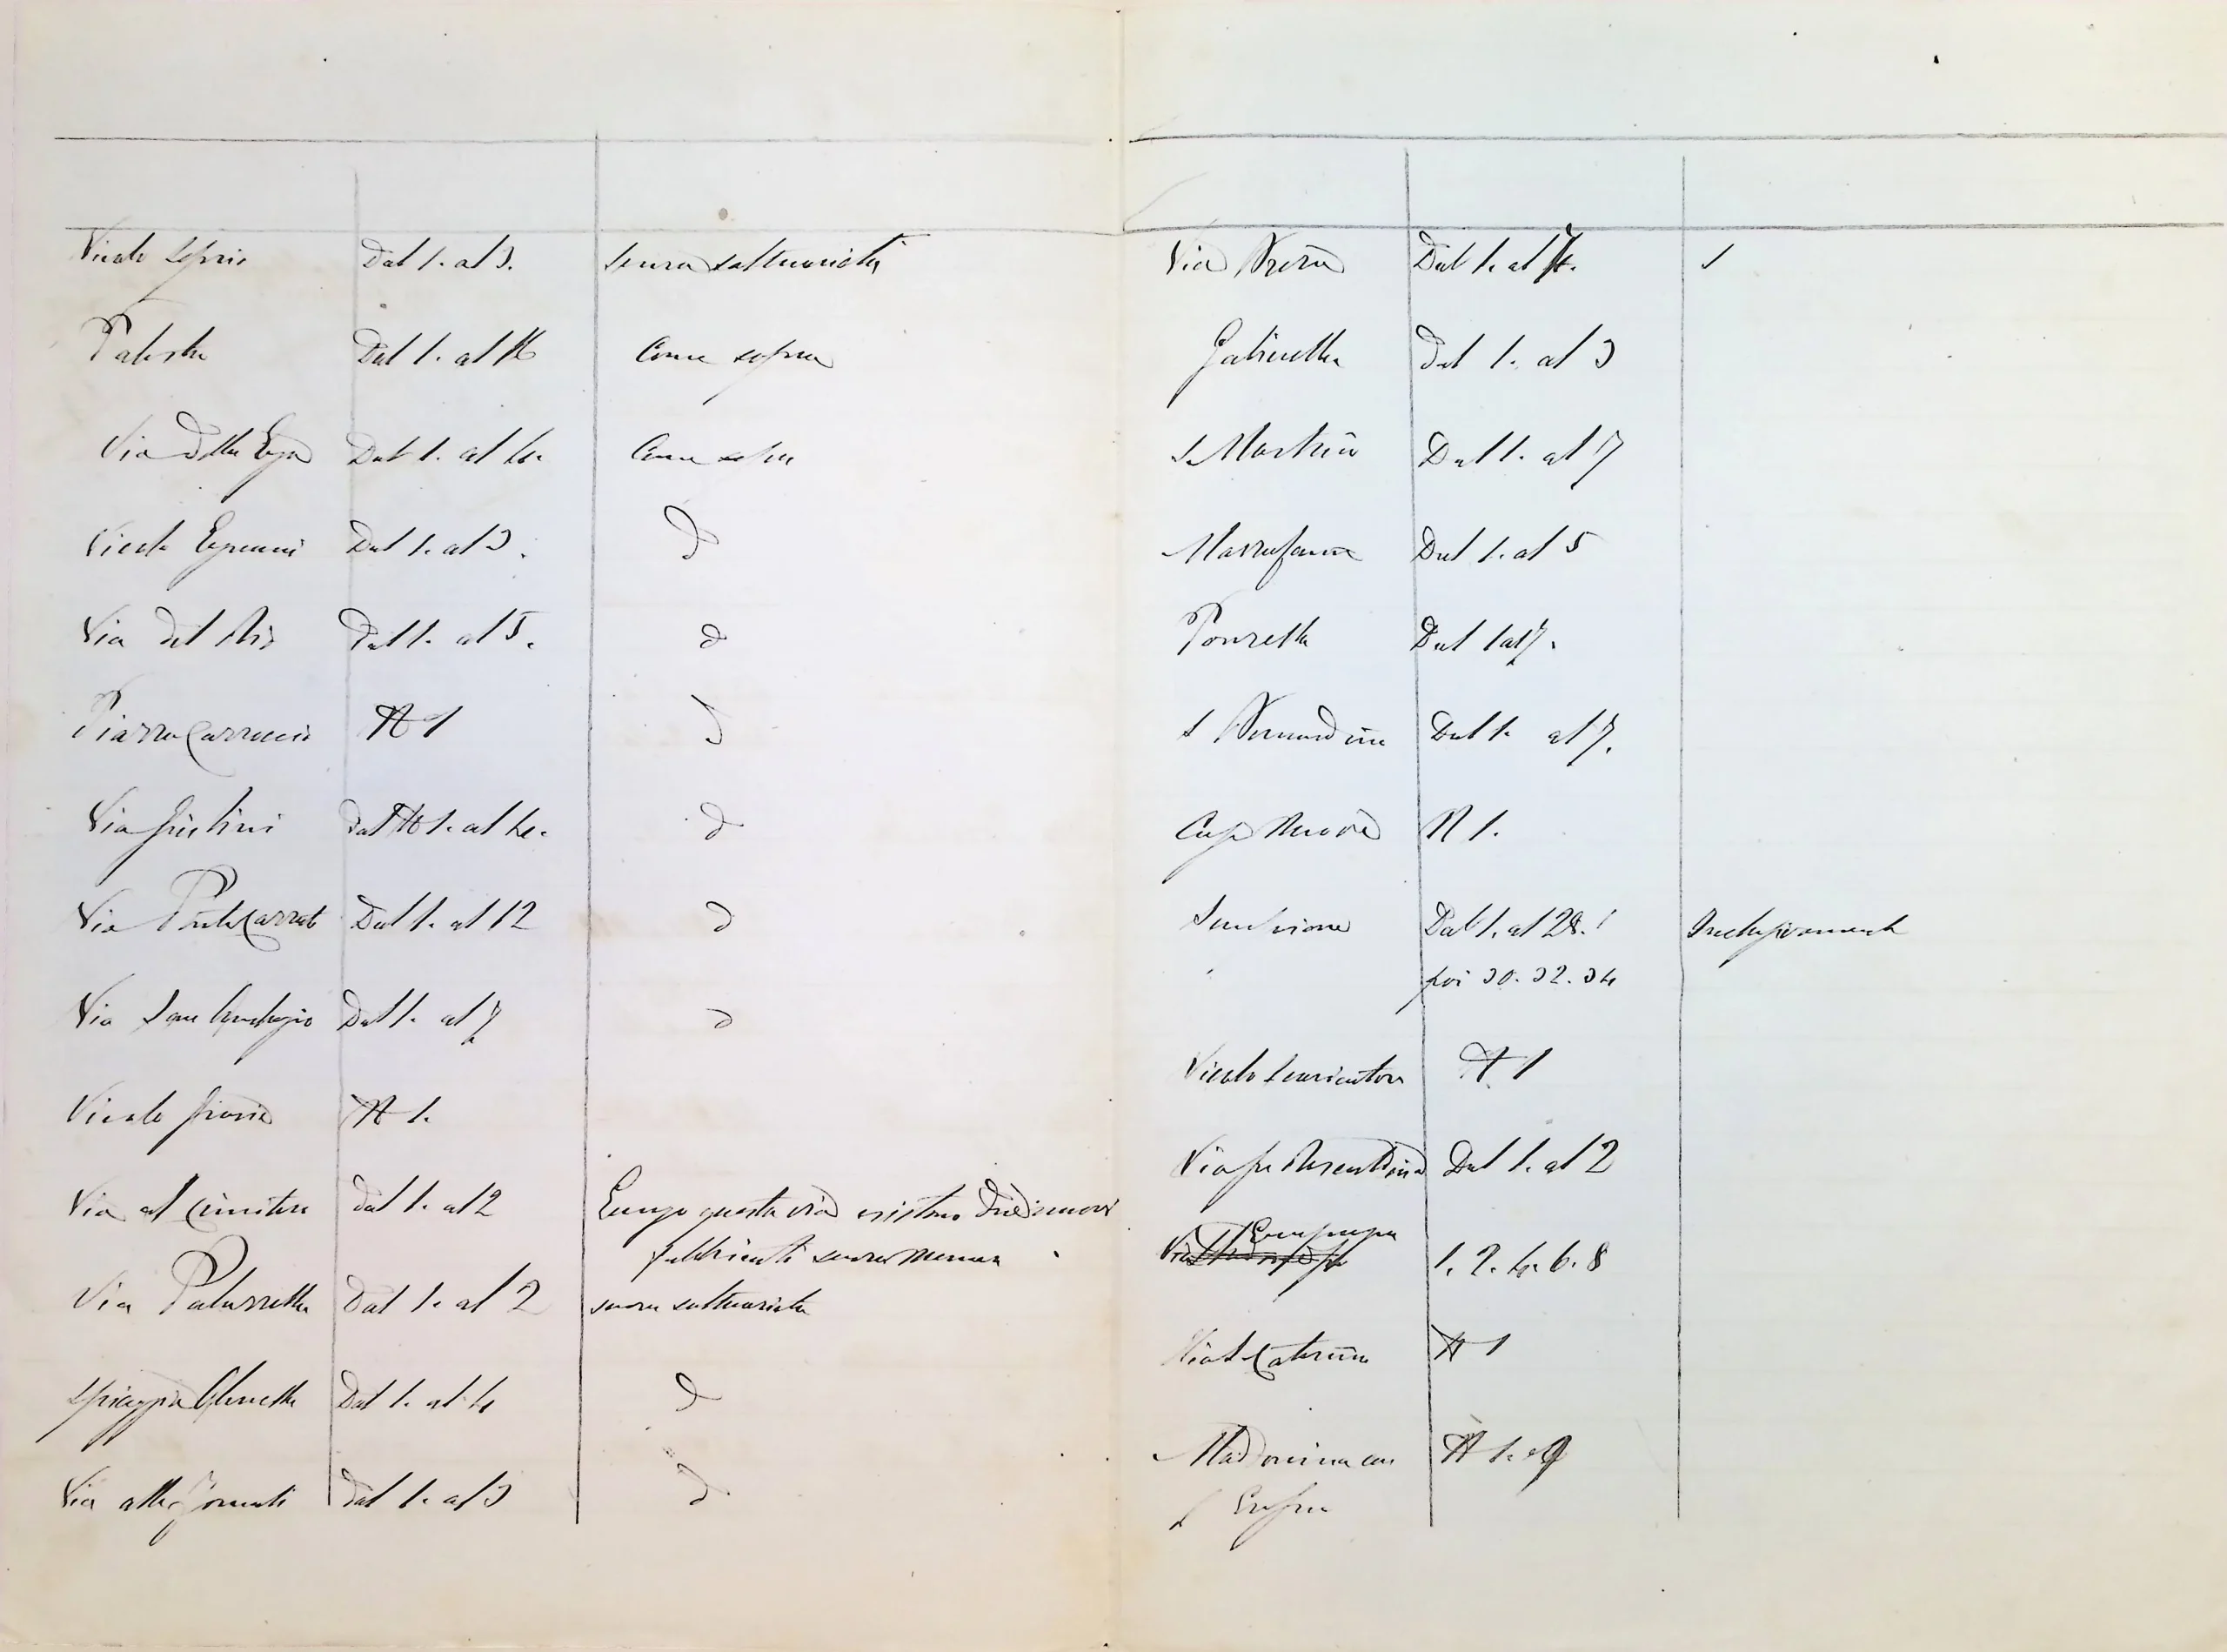 Vicolo Seprio Dal 1. al 3. senza saltuarietà
Palestra Dal 1. al 16 Come sopra
Via Della Lega Dal 1. al 4. Come sopra
Vicolo Dal 1. al 3. D
Via del Rio Dal 1. al 5. d
Piazza Carroccio N 1 D
Via Giustini Dal N 1. al 4. d
Via Dal 1. al 12 d
Via San Ambrogio Dal 1. al 7 d
Vicolo N 1.
Via al Cimitero dal 1. al 2 Lungo questa via esistono Due nuovi
fabbricati senza numeri
Via Palazzetta Dal 1. al 2 senza saltuarietà
Spiaggia Dal 1. al 4 d
Via alle Fornaci Dal 1. al 3 d
Via Brera Dal 1. al 7.
Gabinella Dal 1. al 3
S. Martino Dal 1. al 7
Mazzafame Dal 1. al 5
Ponzella Dal 1 al 7.
S Bernardino Dal 1. al 7.
Casa Nuova N 1.
Sempione Dal 1. al 28. Inclusivamente
poi 30. 32. 34
Vicolo Scaricatore N 1
Via per Dal 1. al 2
Via 1. 2. 4. 6. 8
Via S. Caterina N 1
Madonina con N 1. 2